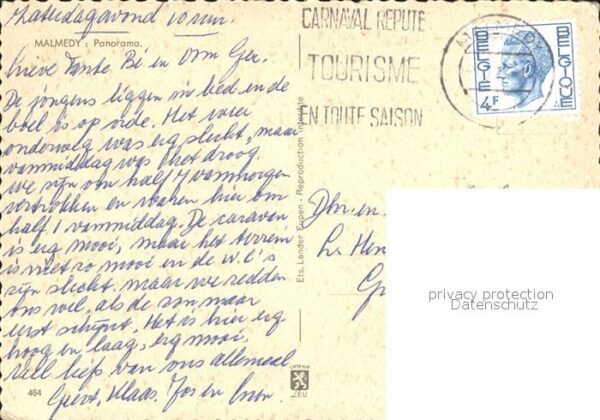 Zaterdagavond 10 uur.
MALMEDY : Panorama.
Lieve Tante Bé en Om Ger.
De jongens liggen in bed en de
boel is op orde. Het weer
onderweg was erg slecht, maar
vanmiddag was het droog.
we zijn om half 7 vanmorgen
vertrokken en waren hier om
half 1 vanmiddag. De caravan
is erg mooi, maar het terrein
is niet zo mooi en de w.c's
zijn slecht. maar we redden
ons wel, als de zon maar
eerst schijnt. Het is hier erg
hoog en laag, erg mooi.
veel liefs van ons allemaal
Geert, Klaas, Jos en
464
CARNAVAL REPUTE
TOURISME
EN TOUTE SAISON
BELGIE 4F BELGIQUE
Ets. Lander Eupen - Reproduction interdite
Dhr. en
privacy protection
Datenschutz
ZEU